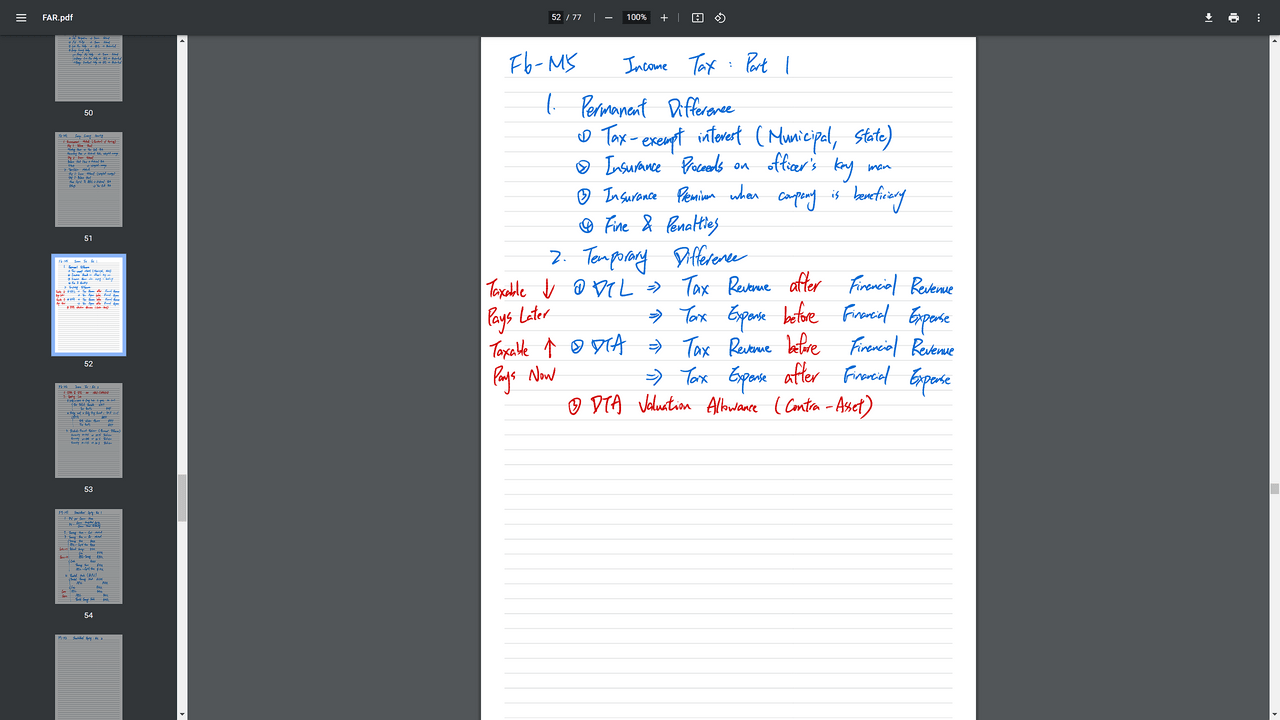 FAR.pdf
52 / 77
100%
50
51
52
53
54
F6-M5 Income Tax : Part 1
1. Permanent Difference
① Tax-exempt interest (Municipal, State)
② Insurance Proceeds on officer's key man
③ Insurance Premium when company is beneficiary
④ Fine & Penalties
2. Temporary Difference
Taxable ↓ ① DTL ⇒ Tax Revenue after Financial Revenue
Pays Later ⇒ Tax Expense before Financial Expense
Taxable ↑ ② DTA ⇒ Tax Revenue before Financial Revenue
Pays Now ⇒ Tax Expense after Financial Expense
③ DTA Valuation Allowance (Contra-Asset)